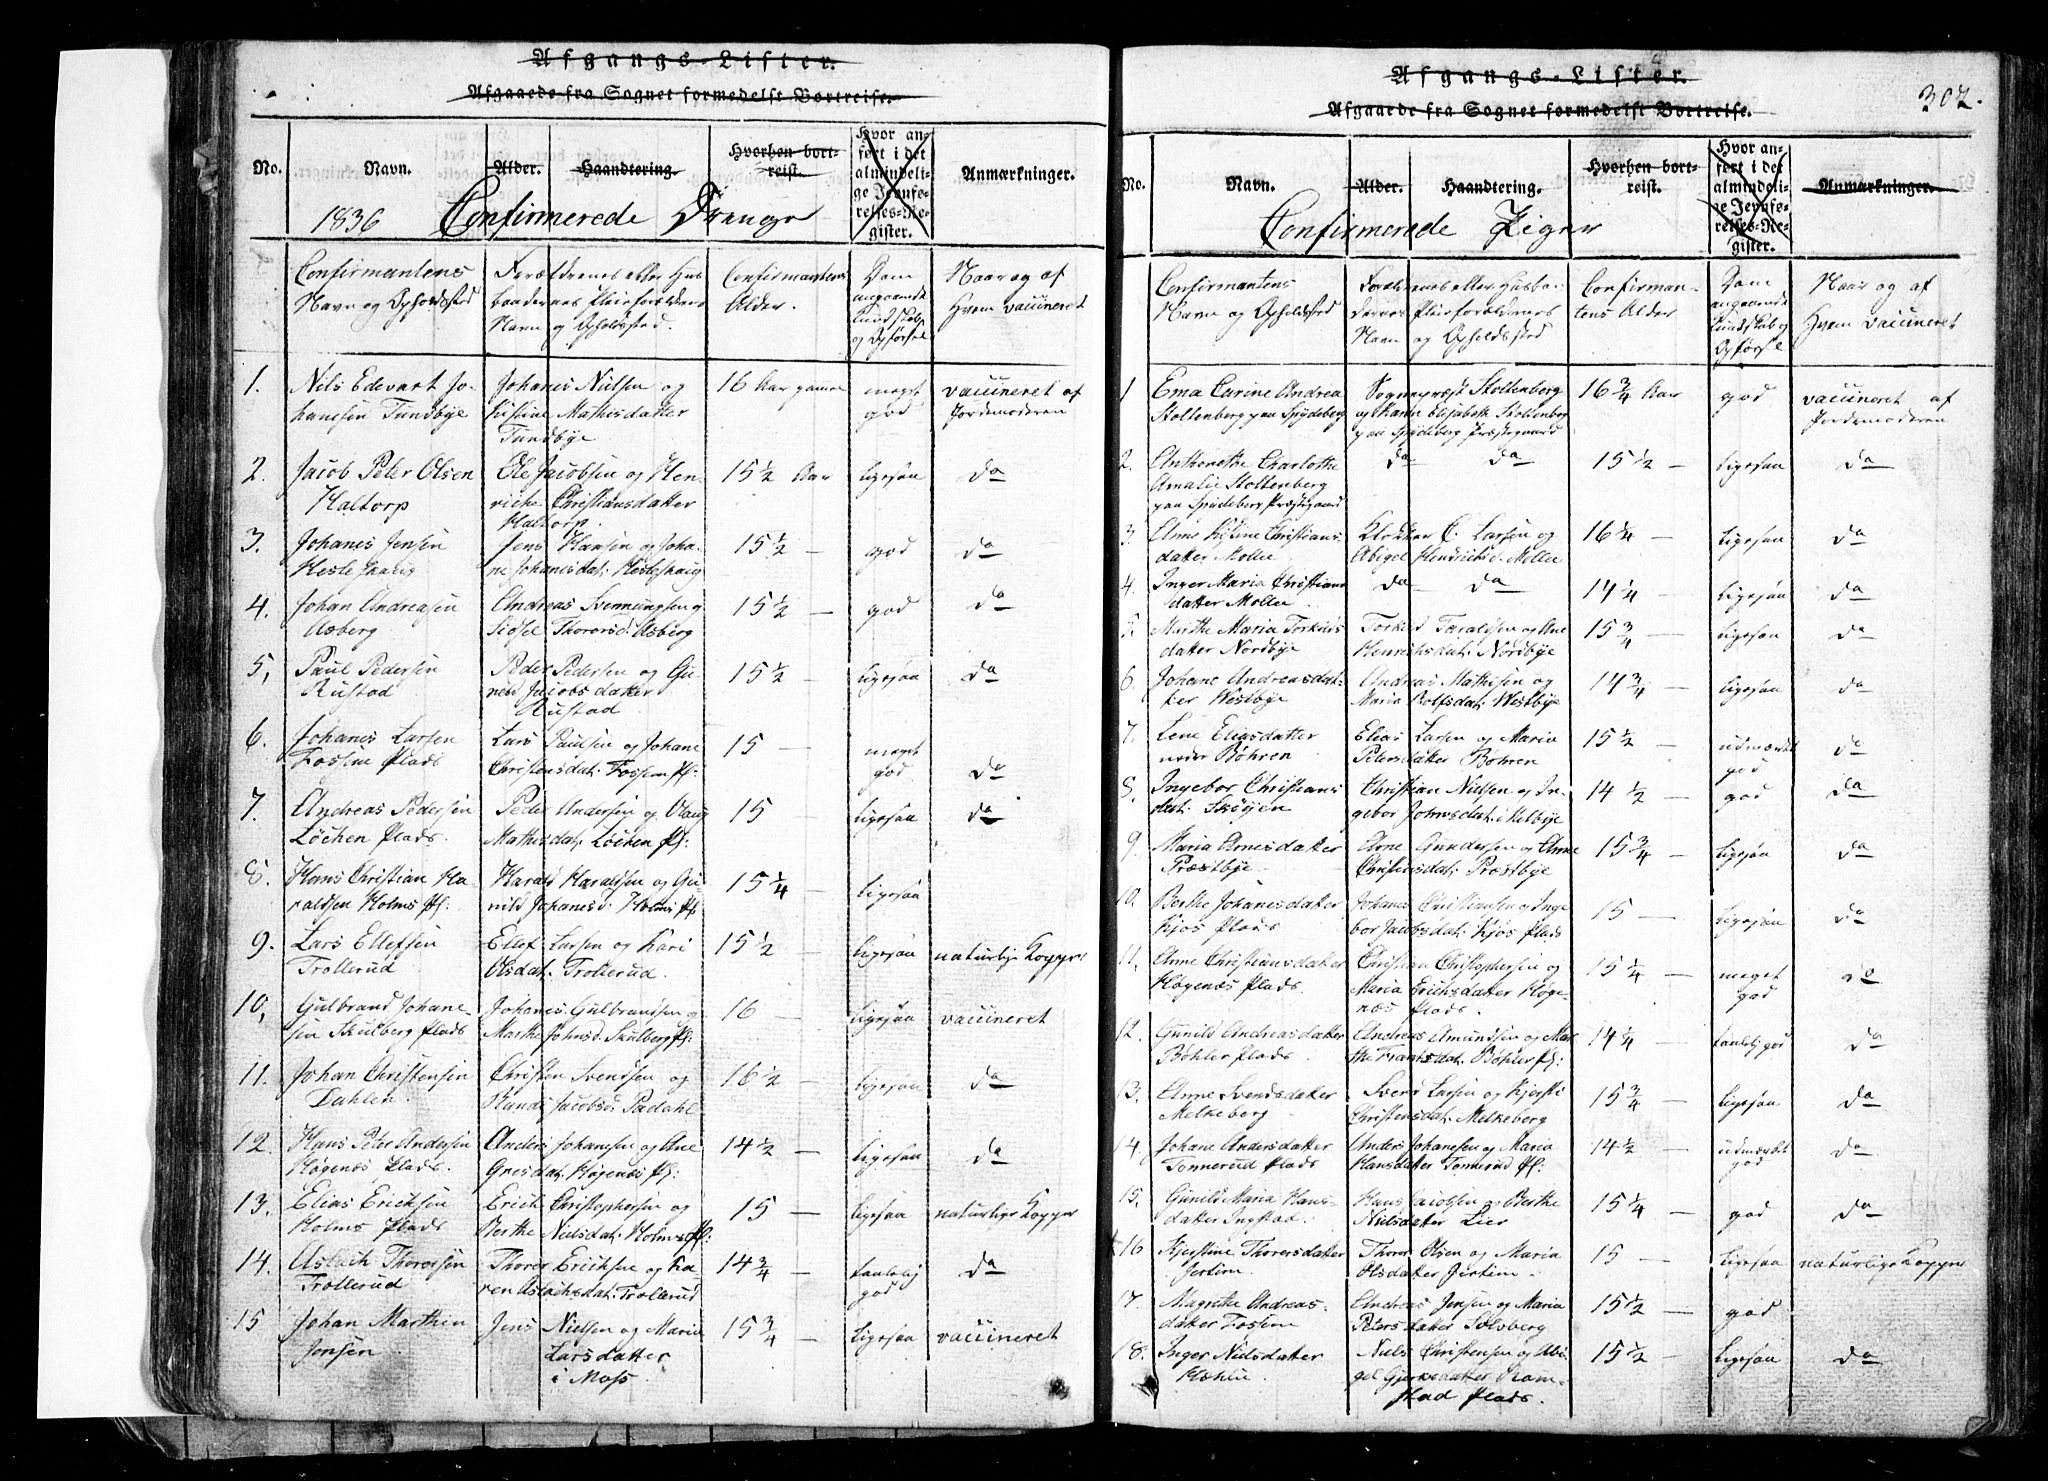 Afgangs-Lister.
Afgaaede fra Sognet formedelst Bortreise.
No.
Navn.
Alder.
Haandtering.
Hvorhen bort-
reist.
Hvor an-
ført i det
almindeli-
ge Jevnfø-
relses-Re-
gister.
Anmærkninger.
1836 Confirmerede Drenge
Confirmantens
Navn og Opholdssted
Forældrenes eller Hus
bondernes Pleieforældrenes
Navn og Opholdssted.
Confirmantens
Alder.
Dom
angaaende
Kundskab
og Opførsel
Naar og af
Hvem vaccineret
1. Nils Edevart Jo-
hansen Tundbye
Johanes Nielsen og
Kirstine Mathisdatter
Tundbye
16 Aar gamel
meget
god
vaccineret af
Jordemoderen
2. Jacob Peter Olsen
Haltorp
Ole Jacobsen og Hen-
riche Christiansdatter
Haltorp
15 ½ Aar
ligesaa
do
3. Johanes Jensen
Hesleskaug
Jens Hansen og Joha-
ne Johanesdat: Hesleskaug
15 ½ —
god
do
4. Johan Andreasen
Asberg
Andreas Svennungsen og
Sidsel Thorersd: Asberg
15 ½ —
god
do
5, Paul Pedersen
Rustad
Peder Pedersen og Gu-
nild Jacobsdatter
Rustad
15 ½ —
ligesaa
do
6. Johanes Larsen
Fossum Plads
Lars Paulsen og Johane
Christensdat: Fossem Pl:
15 —
meget
god
do
7. Andreas Pedersen
Løchen Plads.
Peder Andersen og Olaug
Mathisdat: Løchen Pl:
15 —
ligesaa
do
8. Hans Christian Ha-
raldsen Holms Pl:
Harald Haraldsen og Gu-
nild Johanesd: Holms Pl
15 ¼ —
ligesaa
9. Lars Ellefsen
Trollerud
Ellef Larsen og Kari
Olsdat: Trollerud.
15 ½ —
ligesaa
naturlige Kopper
10, Gulbrand Johane-
sen Skulberg Plads
Johanes Gulbrandsen og
Marthe Johnsd. Skulberg Pl:
16 —
ligesaa
vaccineret
11. Johan Christensen
Dahlen.
Christen Svendsen og
Randi Jacobsd: Padahl
16 ½ —
ligesaa
do
12. Hans Peter Andersen
Høgenæs Plads.
Anders Johansen og Ane
Gresdat: Høgenæs Pl:
14 ½ —
ligesaa
do
13. Elias Ericksen
Holms Plads
Erich Christophersen og
Berthe Nielsdat: Holms Pl:
15 —
ligesaa
naturlige Kopper
14. Aslach Thorersen
Trollerud
Thorer Ericksen og Ka-
ren Aslachsdat: Trollerud
14 ¾ —
taalelig
god
do
15 Johan Marthin
Jensen
Jens Nielsen og Maria
Larsdatter
i Moss.
15 ¾ —
ligesaa
vaccineret
Afgangs-Lister.
Afgaaede fra Sognet formedelst Bortreise.
302.
No.
Navn.
Alder.
Haandtering.
Hvorhen bort-
reist.
Hvor an-
ført i det
almindeli-
ge Jevnfø-
relses-Re-
gister.
Anmærkninger.
Confirmerede Piger
Confirmantens
Navn og Opholdssted
Forældrenes eller Husbon-
dernes Pleieforældrenes
Navn og Opholdssted
Confirman-
tens Alder
Dom
angaaende
Kundskab og
Opførsel
Naar og af
Hvem vaccineret
1 Ema Carine Andrea
Stoltenberg paa Spydeberg
Sognepræst Stoltenberg
og Karen Elisabeth Stoltenberg
paa Spydeberg Præstegaard
16 ¾ Aar
god
vaccineret af
Jordemoderen
2. Anthenette Charlotte
Amalie Stoltenberg
paa Spydeberg Præstegaard
do do
15 ½ —
ligesaa
do
3. Anne Kistine Christians-
datter Mollee
Klokker C. Larsen og
Abigel Henriksd: Mollee
16 ¼ —
ligesaa
do
4. Inger Maria Christians
datter Mollee.
do do
14 ¼ —
ligesaa
do
5. Marthe Maria Torkils
datter Nordbye
Torkild Taraldsen og Ane
Henrichsdat: Nordbye
15 ¾ —
ligesaa
do
6. Johane Andreasdat-
ter Westbye
Andreas Mathisen og
Maria Rolfsdat: Westbye
14 ¾ —
ligesaa
do
7. Lene Eliasdatter
neder Bøhren
Elias Larsen og Maria
Petersdatter Bøhren
15 ½ —
udmærket
god
do
8. Ingebor Christians
dat: Skøyen
Christian Nielsen og In-
gebor Johnsdat: i Melbye
14 ½ —
god
do
9. Maria Arnesdatter
Præstbye
Arne Gundersen og Anne
Christensdat: Præstbye
15 ¾ —
ligesaa
do
10. Berthe Johanesdatter
Kjos Plads
Johanes Christiansen og Inge
bor Jacobsdat: Kjos Plads
15 —
ligesaa
do
11. Anne Christiansdatter
Høgenæs Plads
Christian Christophersen og
Maria Erichsdatter Høge-
næs Plads.
15 ¼ —
meget
god
do
12. Gunild Andreasdatter
Bøhler Plads
Andreas Amundsen og Mar
the Frantsdat: Bøhler Pl:
14 ¼ —
taalelig god
do
13. Anne Svendsdatter
Melkeberg
Svend Larsen og Kjersti
Christensdat: Melkeberg
15 ¾ —
ligesaa
do
14. Johane Andersdatter
Tommerud Plads
Anders Johansen og Maria
Hansdatter Tommerud Pl:
14 ½ —
udmærket
god
do
15. Gunild Maria Hans-
datter Ingstad.
Hans Jacobsen og Berthe
Nielsdatter Lier
15 ¼ —
god
do
16 Kjerstine Thorersdatter
Jertim
Thorer Olsen og Maria
Olsdatter Jertim
15 —
ligesaa
naturlige Kopper
17. Magrethe Andreas-
datter Fossum
Andreas Jensen og Maria
Petersdatter Solsberg
15 ½ —
god
do
18. Inger Nielsdatter
Hæhlie
Niels Christensen og Abi-
gel Gjersdatter Ram-
stad Plads.
15 ½ —
ligesaa
do